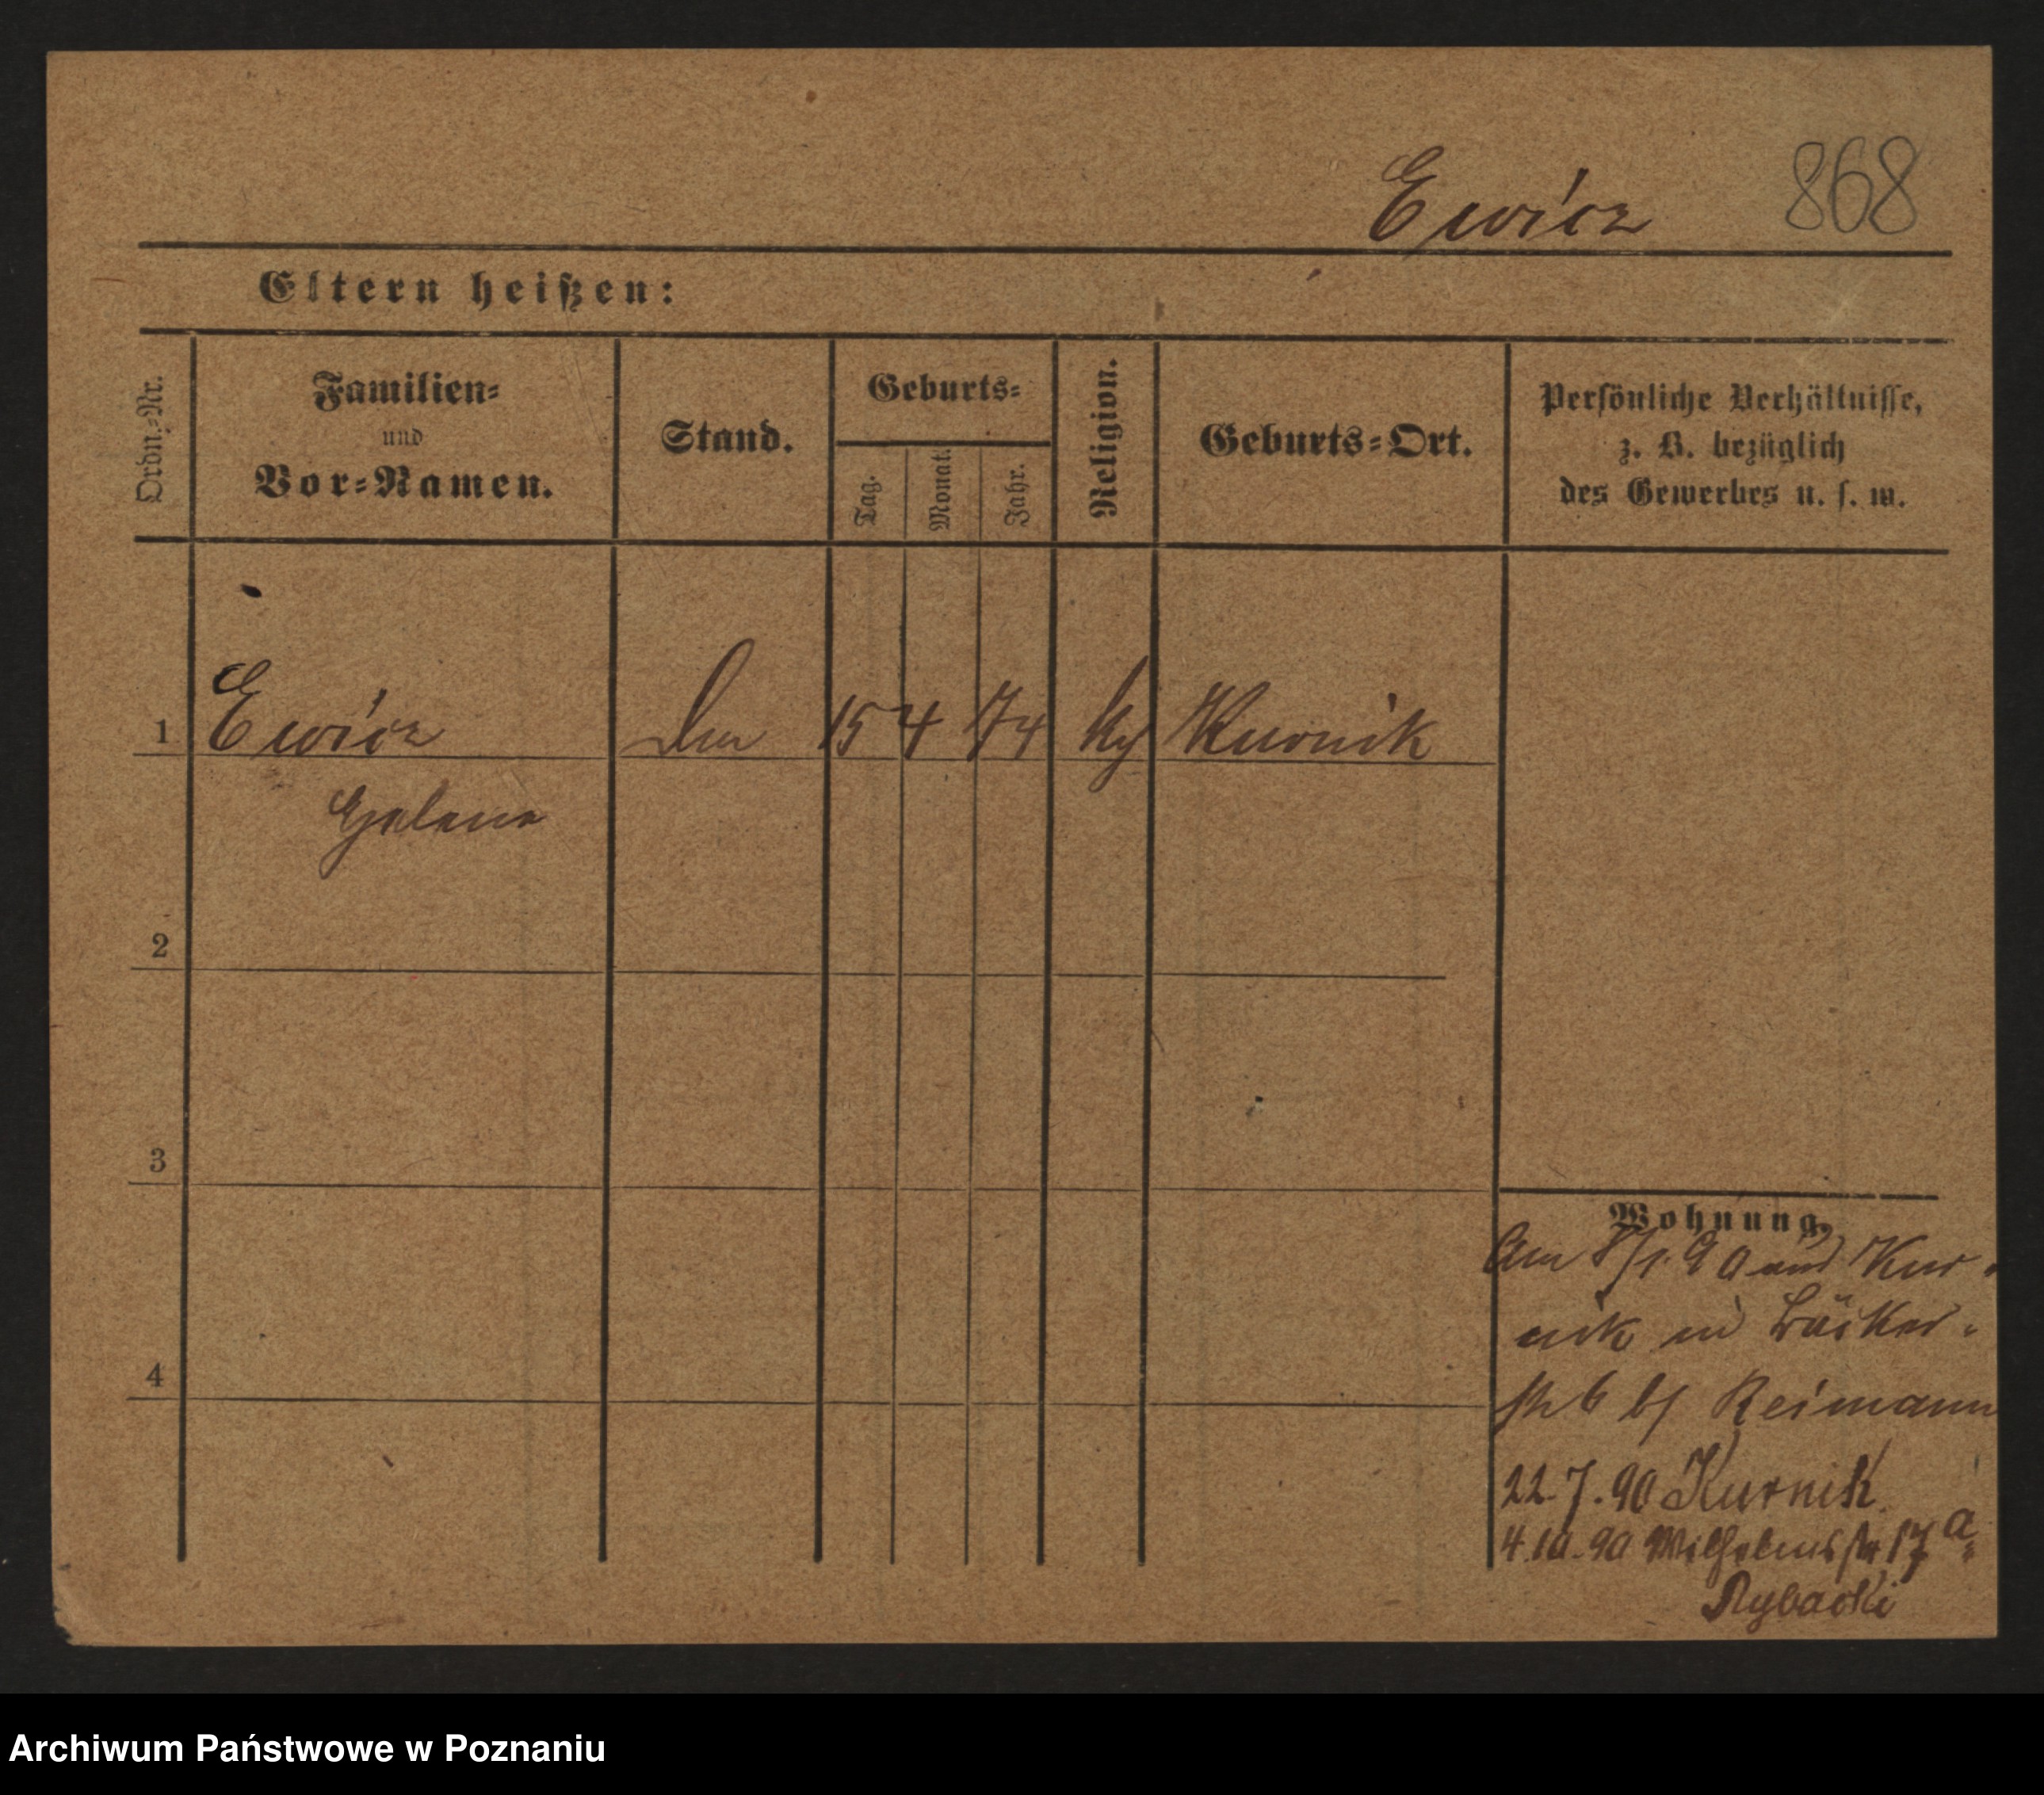 Ewicz 868
Eltern heißen:
Ordn.-Nr.
Familien-
und
Vor-Namen.
Stand.
Geburts-
Tag.
Monat.
Jahr.
Religion.
Geburts-Ort.
Persönliche Verhältnisse,
z. B. bezüglich
des Gewerbes u. s. w.
1 Ewicz 15 4 74 Kurnik
Helena
2
3
4
Wohnung.
Am 8/1 90 aus Kur-
nik in Bäcker-
str 6 bei Reimann
22.7.90 Kurnik
4.10.90 Wilhelmstr 17a
Rybacki
Archiwum Państwowe w Poznaniu